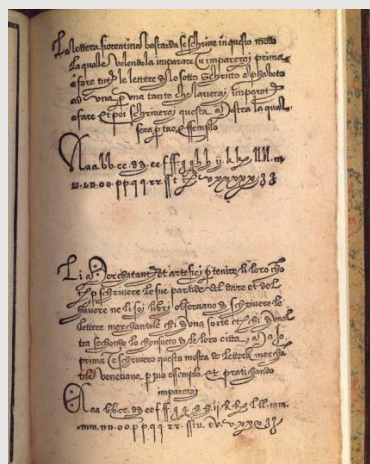 La lettera fiorentina bastarda se schrive in questo modo
La quale volendola imparare u imparerai prima
a fare tute le lettere di sotto schritto alphabeto
ad una p una tanto che haverai imparato
a fare et poi schriverai questa mostra la qual
sera p tuo essempio
Aaa.bb.cc.dd.ee.fff.g.g.hh.ii.kk.ll.ll.m
n.nn.oo.pp.qq.rr.sst
Li Merchatanti et artefici p tenire li loro
p schrivere le sue partide del dare et del
havere ne li soi libri observano di schrivere le
lettere merchantile chi d una sorte et chi d unal
tra sechondo lo chonsueto de le loro citta
prima se schrivero questa mostra de lettera mercha
tile Venetiana p suo essempio et pratichando
imparerai
Aaa.bb.cc.dd.ee.fff.g.g.g.ii.k.k.ll.ll.mm.
mm.nn.oo.pp.qq.rr.sstt.